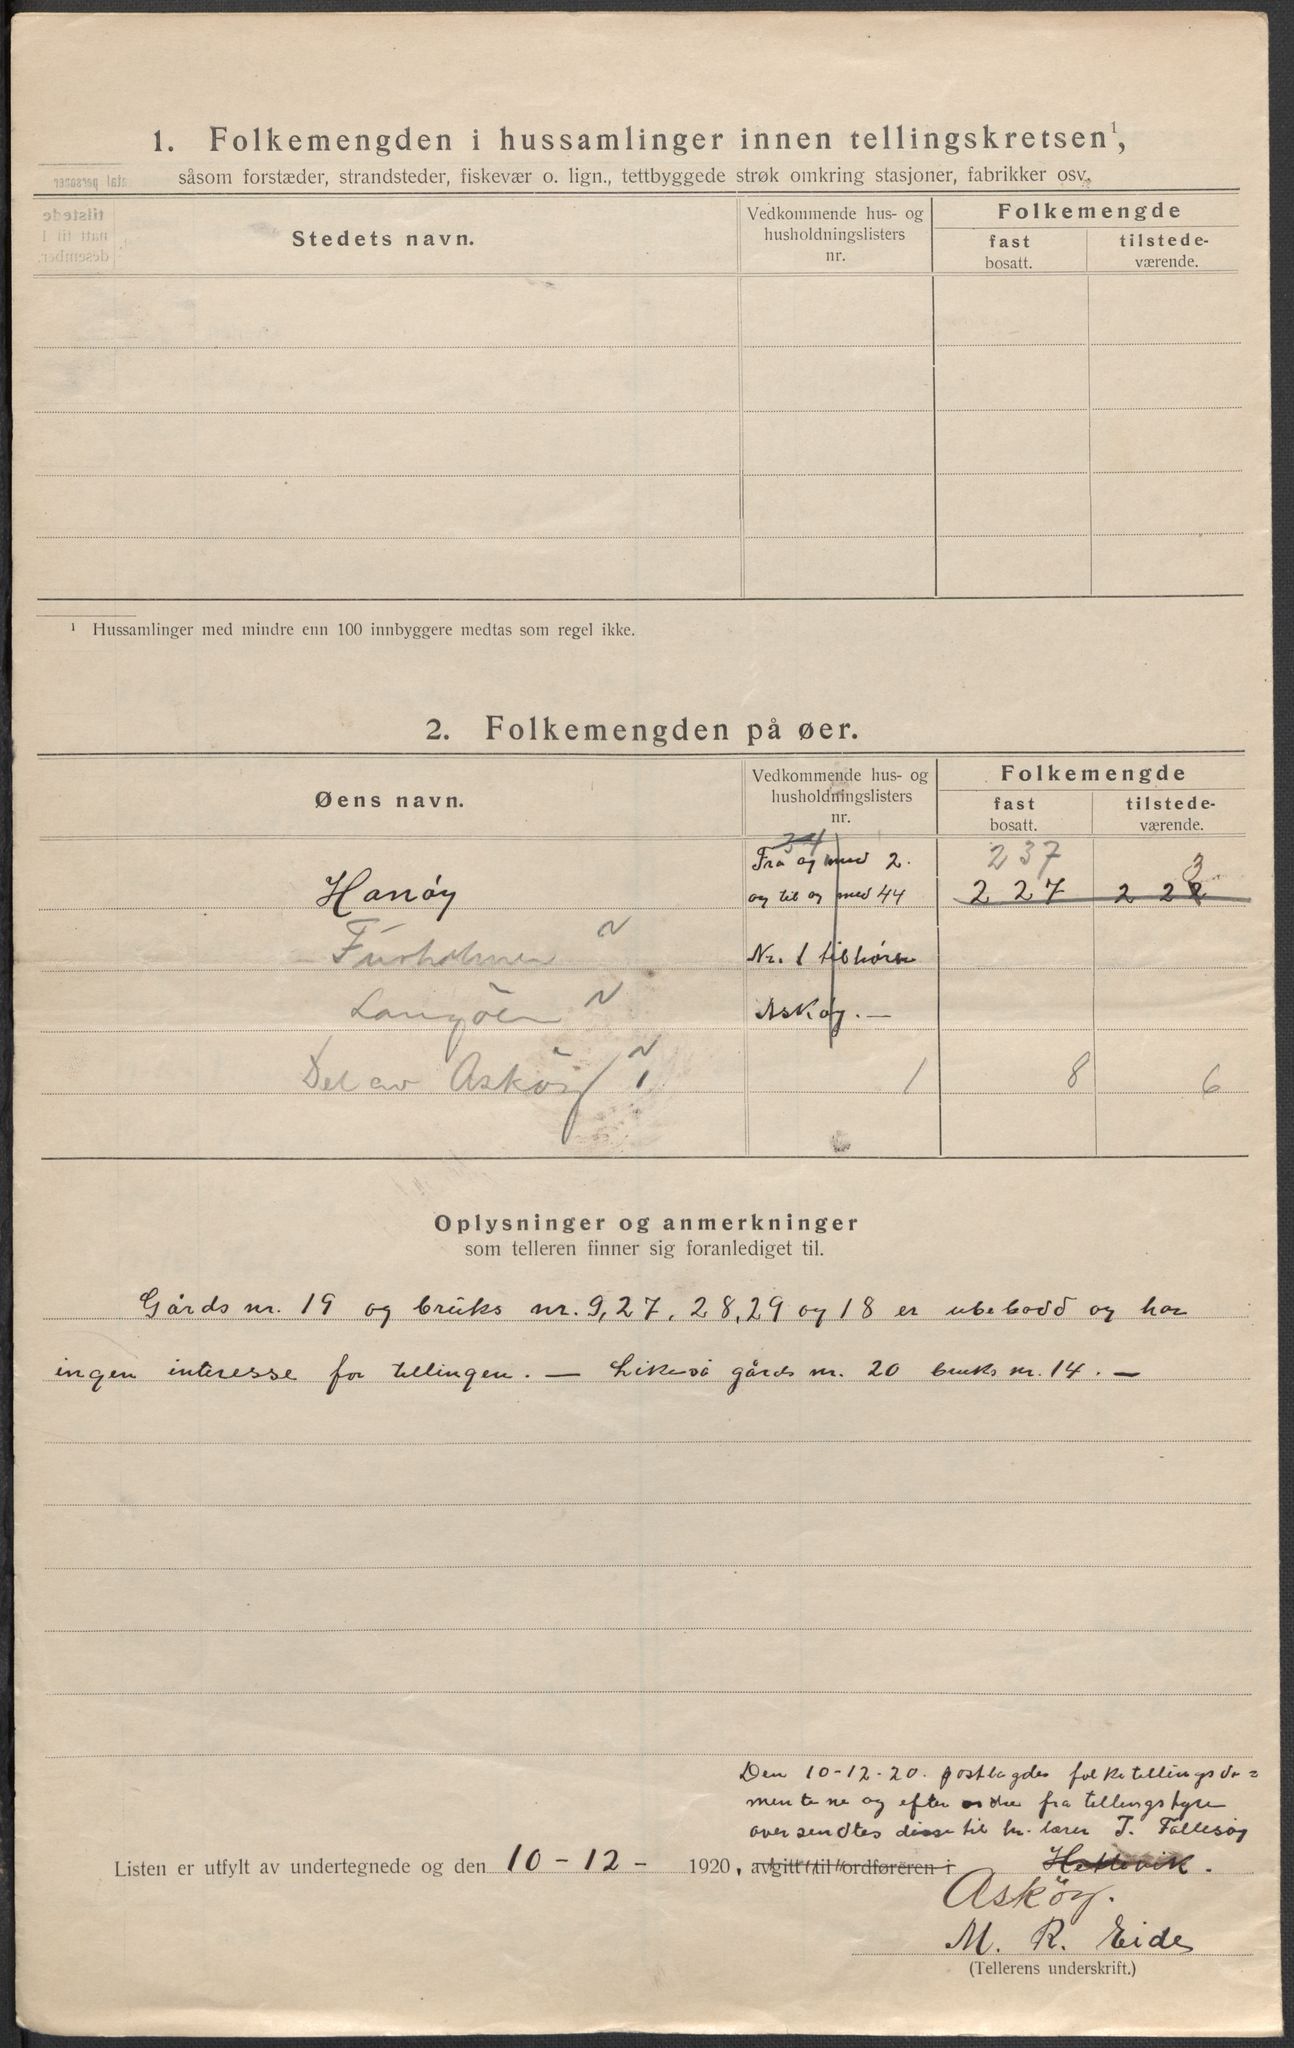 1. Folkemengden i hussamlinger innen tellingskretsen¹,
såsom forstæder, strandsteder, fiskevær o. lign., tettbyggede strøk omkring stasjoner, fabrikker osv.
Stedets navn.
Vedkommende hus- og
husholdningslisters
nr.
Folkemengde
fast
bosatt.
tilstede-
værende.
¹ Hussamlinger med mindre enn 100 innbyggere medtas som regel ikke.
2. Folkemengden på øer.
Øens navn.
Vedkommende hus- og
husholdningslisters
nr.
Folkemengde
fast
bosatt.
tilstede-
værende.
34
Fra og med 2. 237 3
Hanøy og til og med 44 227 222
Furholmen Nr. 1 tilhører
Langöen Askøy. —
Del av Asköy 1 8 6
Oplysninger og anmerkninger
som telleren finner sig foranlediget til.
Gårds nr. 19 og bruks nr. 9, 27, 28, 29 og 18 er ubebodd og har
ingen interesse for tellingen. — Likeså gårds nr. 20 bruks nr. 14. —
Den 10-12-20. postlagdes folketellingsdo=
mentene og efter ordre fra tellingstyre
oversendtes disse til hr. lærer T. Follesøy
Listen er utfylt av undertegnede og den 10 - 12 - 1920, avgitt til ordføreren i Hetlevik.
Asköy.
M. R. Eide
(Tellerens underskrift.)